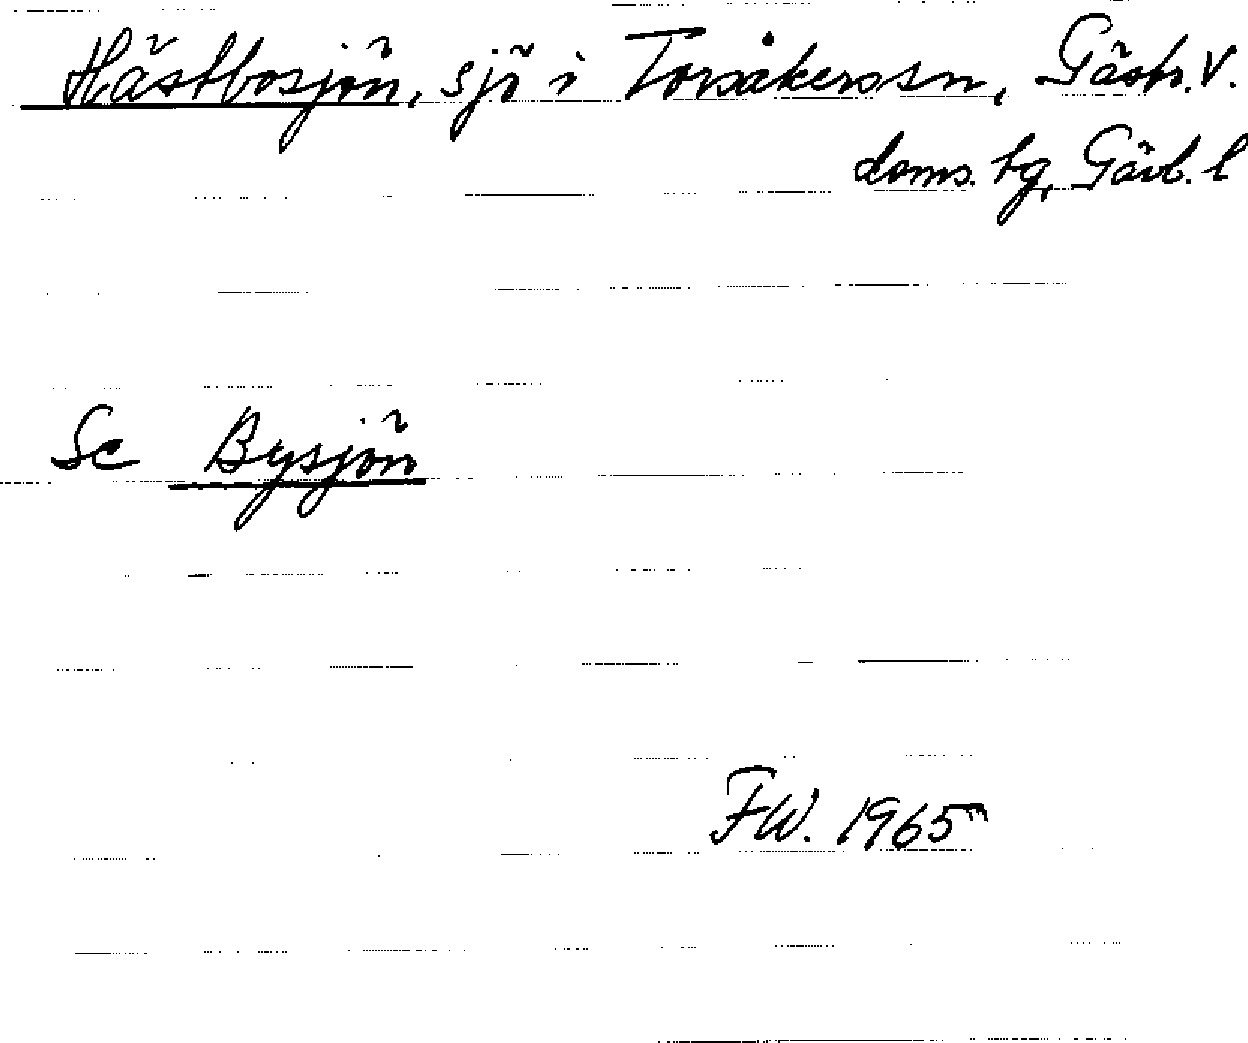 Hästbosjön, sjö i Torsåkers sn, Gästr. V.
doms. tg, Gävl. l
Se Bysjön
FW. 1965